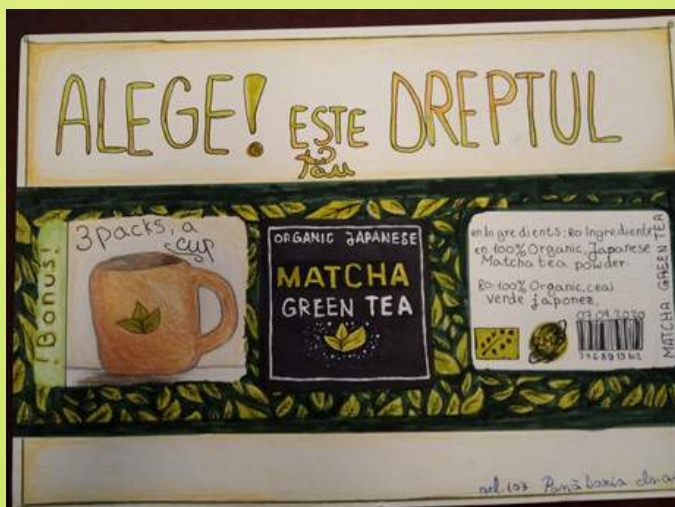 ALEGE! ESTE DREPTUL
Tău
!Bonus!
3 packs, a
cup
ORGANIC JAPANESE
MATCHA
GREEN TEA
en Ingredients; Ro Ingrediente
en 100% Organic, Japanese
Matcha tea powder
Ro 100% Organic, ceai
verde japonez,
07.04.2020
MATCHA GREEN TEA
Pană Daria